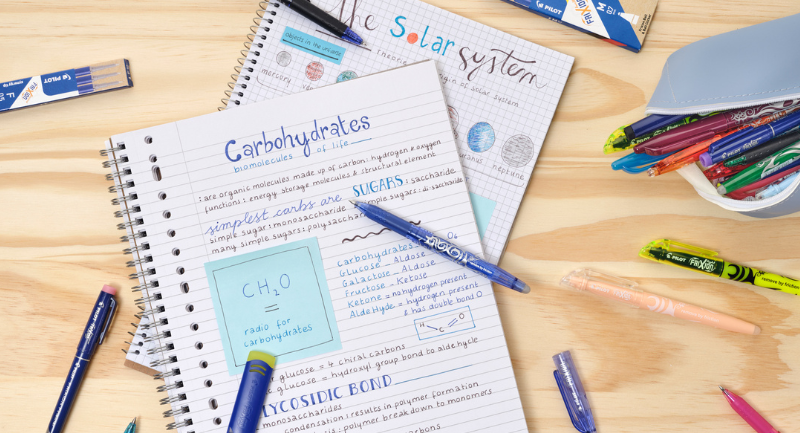 The Solar System
objects in the universe
mercury
theories
origin of solar system
uranus
neptune
Carbohydrates
biomolecules of life
: are organic molecules made up of carbon, hydrogen & oxygen
functions : energy storage molecules & structural element
simplest carbs are SUGARS : saccharide
simple sugar : monosaccharide
simple sugars : di-saccharide
many simple sugars : polysaccharide
CH2O
=
radio for
carbohydrates
Carbohydrates
O6
Glucose - Aldose
Galactose - Aldose
Fructose - Ketose
Ketone = no hydrogen present
Aldehyde = hydrogen present
& has double bond O
H
C
O
glucose = 4 chiral carbons
glucose = hydroxyl group bond to aldehyde
LYCOSIDIC BOND
monosaccharides
condensation : results in polymer formation
: polymer break down to monomers
carbons
PILOT
FriXion
PILOT
FriXion
FriXion
PILOT
FriXion